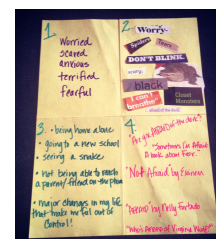 1
Worried
scared
anxious
terrified
fearful
2.
Worry-
Spiders
DON'T BLINK.
scary,
black
I can't
breathe
Closet
Monsters
3. • being home alone
• going to a new school
• seeing a snake
• not being able to reach
a parent/friend on the phone
• major changes in my life
that make me feel out of
control!
4.
"Are you AFRAID of the dark?"
"Sometimes I'm Afraid
A book about Fear."
"Not Afraid" by Eminem
"Afraid" by Nelly Furtado
"Who's Afraid of Virginia Woolf?"